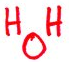 H H
O